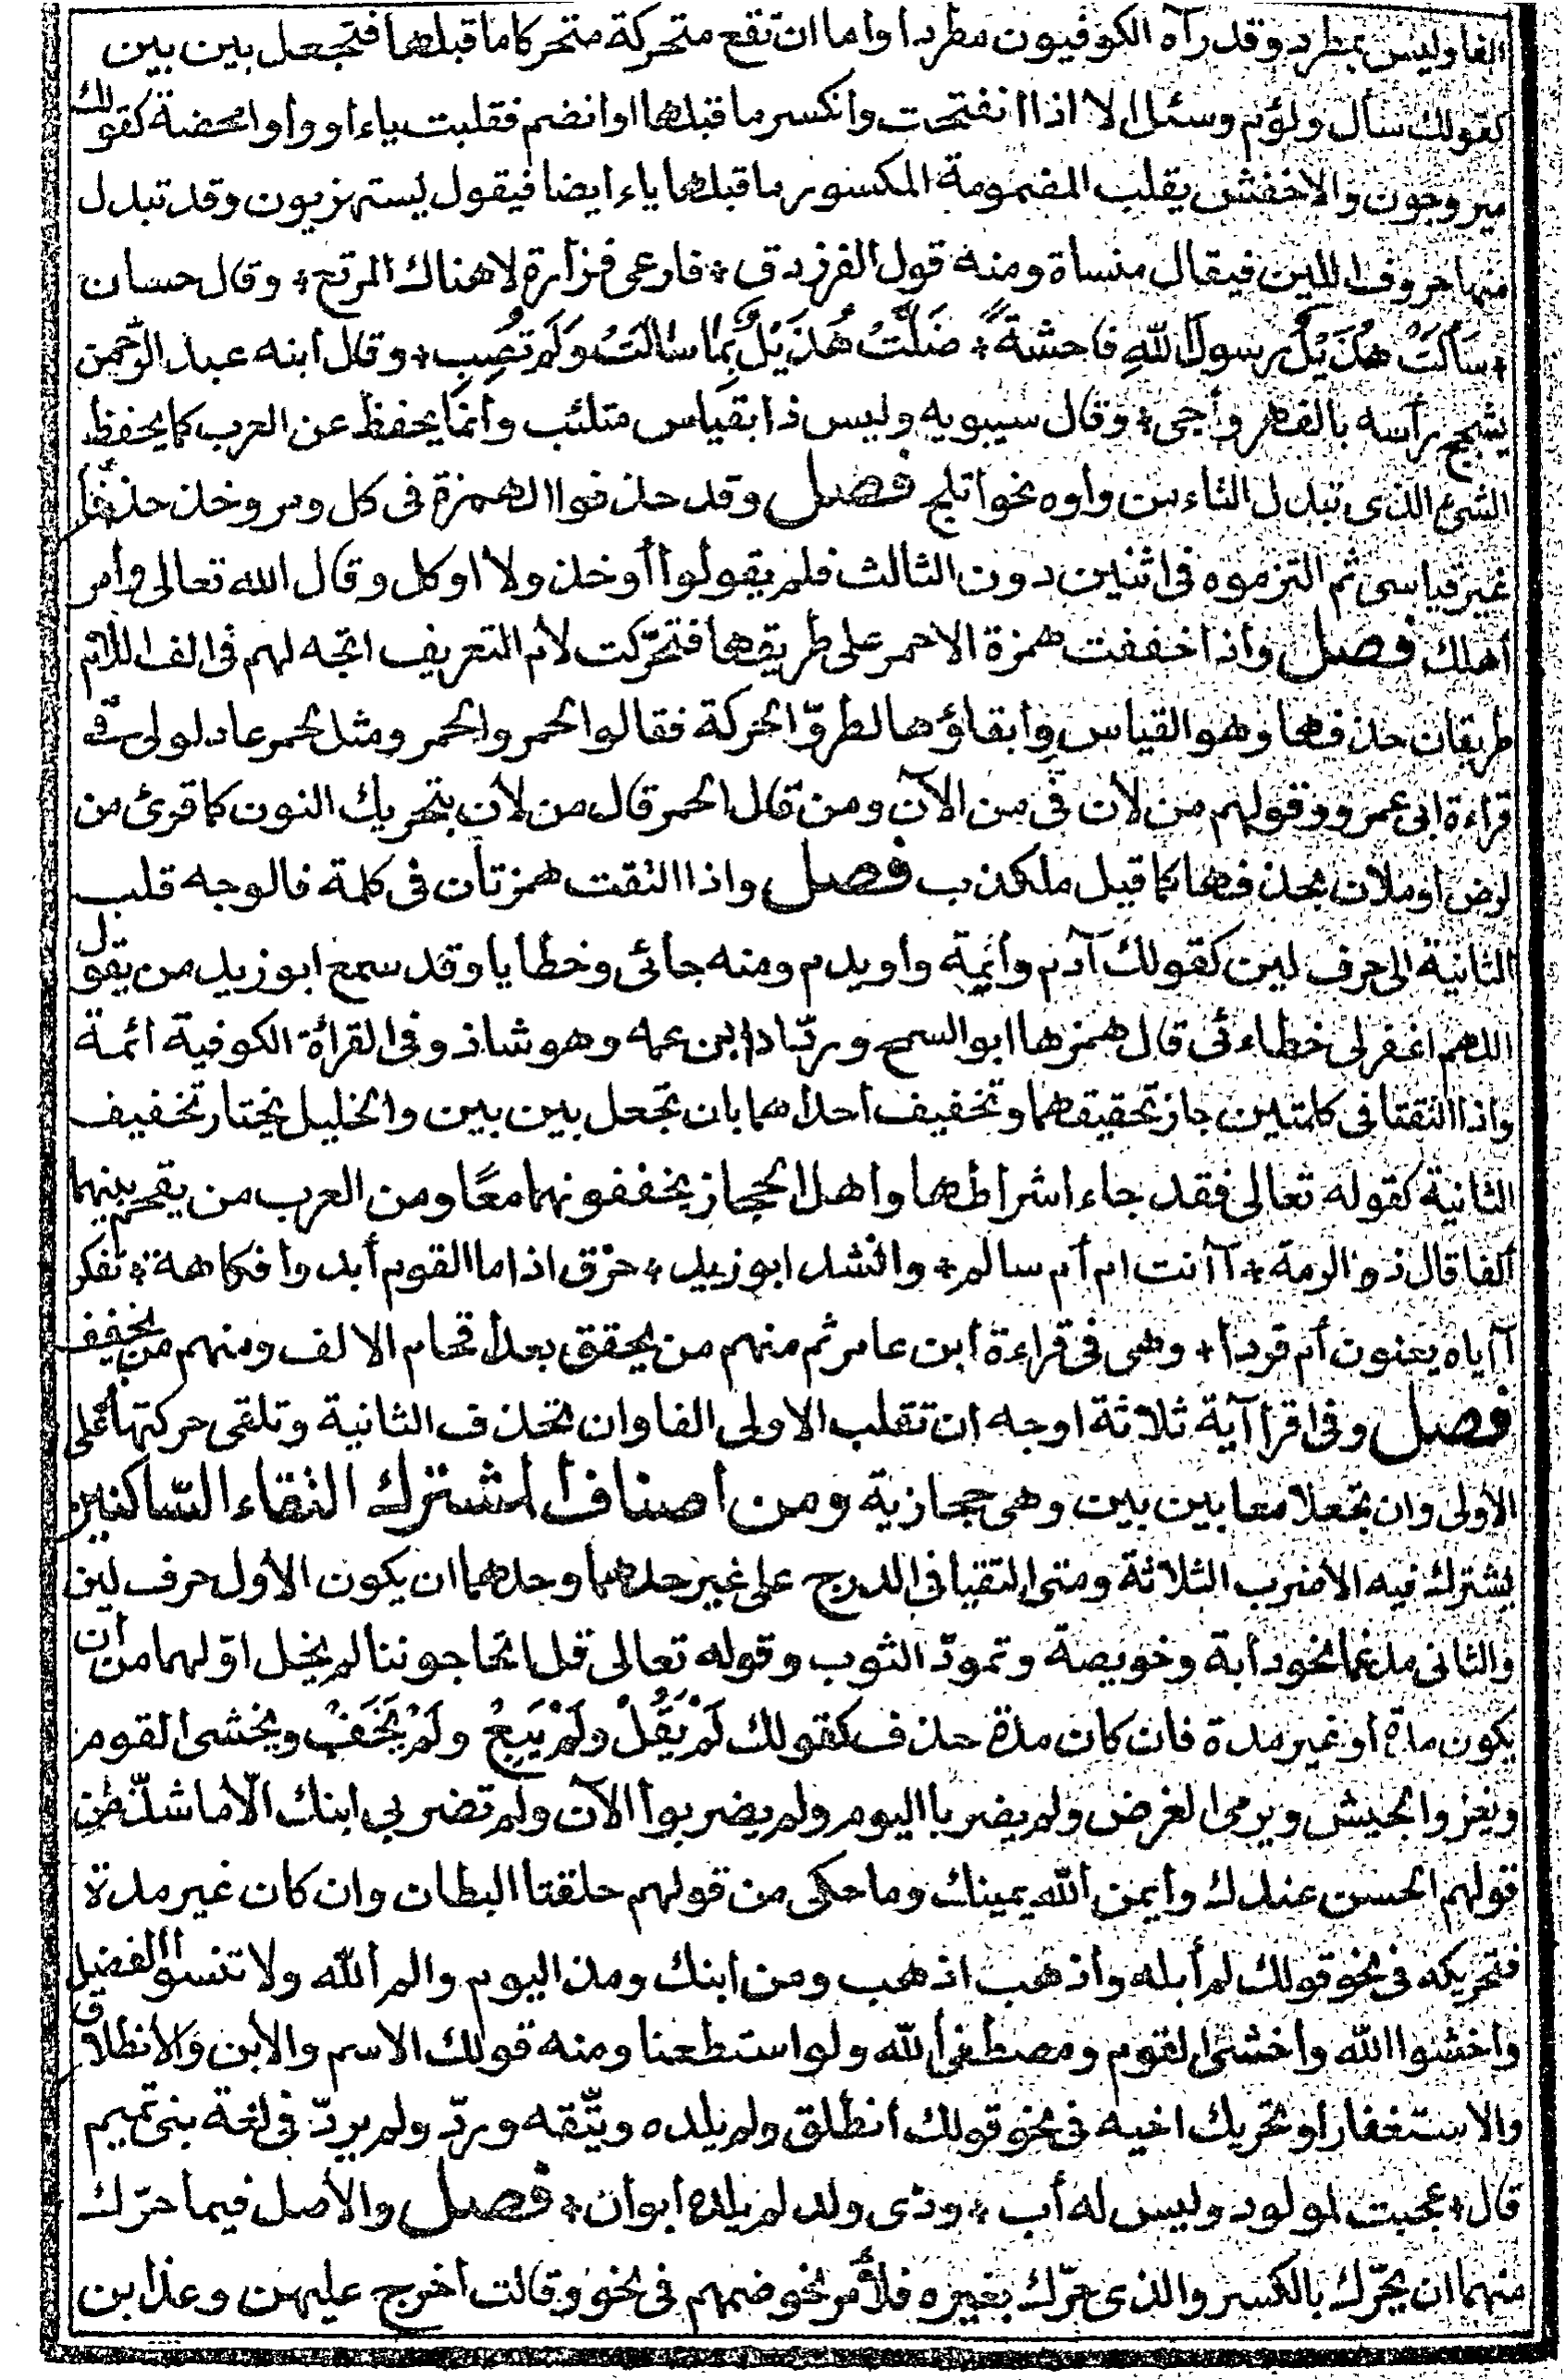 الفا وليس بمطرد وقد رآه الكوفيون مطردا واما ان تقع متحركة متحركا ما قبلها فتجعل بين بين
كقولك سأل ولؤم وسئل الا اذا انفتحت وانكسر ما قبلها او انضم فقلبت ياء أو واوا محضة كقولك
مير وجون والاخفش يقلب المضمومة المكسور ما قبلها ياء ايضا فيقول يستهزيون وقد تبدل
منها حروف اللين فيقال منساة ومنه قول الفرزدق ٭ فارعى فزارة لا هناك المرتع ٭ وقال حسان
٭ سَأَلَتْ هُذَيْلٌ رسول اللهِ فاحشةً ٭ ضَلَّتْ هُذَيْلٌ بِمَا سَالَتْ وَلَمْ تُصِبِ ٭ وقال ابنه عبد الرّحمن
يشجج رأسه بالفهر واجى ٭ وقال سيبويه وليس ذا بقياس متلئب وانما يحفظ عن العرب كما يحفظ
الشئ الذى تبدل التاء من واوه نحو اتلج فصل وقد حذفوا الهمزة فى كل ومر وخذ حذفا
غير قياسى ثم التزموه فى اثنين دون الثالث فلم يقولوا أوخذ ولا اوكل وقال الله تعالى وأمر
أهلك فصل واذا خففت همزة الاحمر على طريقها فتحرّكت لام التعريف اتجه لهم فى الف اللام
طريقان حذفها وهو القياس وابقاؤها لطروّ الحركة فقالوا لحمر والحمر ومثل لحمر عاد لولى فى
قراءة ابى عمرو وقولهم من لان فى من الآن ومن قال الحمر قال من لان بتحريك النون كما قرئ من
لرض او ملان بحذفها كما قيل ملكذب فصل واذا التقت همزتان فى كلمة فالوجه قلب
الثانية الى حرف لين كقولك آدم وأيمة واويدم ومنه جائى وخطايا وقد سمع ابو زيد من يقول
اللهم اغفر لى خطاءئى قال همزها ابو السمح وردّاد ابن عمه وهو شاذ وفى القرأة الكوفية ائمة
واذا التقتا فى كلمتين جاز تحقيقهما وتخفيف احداهما بان تجعل بين بين والخليل يختار تخفيف
الثانية كقوله تعالى فقد جاء اشراطها واهل الحجاز يخففونهما معًا ومن العرب من يقحم بينهما
الفا قال ذو الرمة ٭ آأنت ام أم سالم ٭ وانشد ابو زيد ٭ حزق اذا ما القوم أبدوا فكاهة ٭ تفكر
آاياه يعنون أم قردا ٭ وهى فى قراءة ابن عامر ثم منهم من يحقق بعد اقحام الالف ومنهم من يخفف
فصل وفى اقرا آية ثلاثة اوجه ان تقلب الاولى الفا وان تحذف الثانية وتلقى حركتها على
الاولى وان تجعلا معا بين بين وهى حجازية ومن اصناف المشترك التقاء السّاكنين
يشترك فيه الاضرب الثلاثة ومتى التقيا فى الدرج على غير حدهما وحدهما ان يكون الأول حرف لين
والثانى مدغما نحو دابة وخويصة وتمودّ الثوب وقوله تعالى قل اتحاجوننا لم يخل اوّلهما من ان
يكون مدة او غير مدة فان كان مدة حذف كقولك لَمْ يَقُلْ ولَمْ يَبِعْ ولَمْ يَخَفْ ويخشى القوم
ويغزوا الجيش ويرمى الغرض ولم يضربا اليوم ولم يضربوا الآن ولم تضربى ابنك الّا ما شذّ من
قولهم الحسن عندك وايمن الله يمينك وما حكى من قولهم حلقتا البطان وان كان غير مدة
فتحريكه فى نحو قولك لم أبله واذهب اذهب ومن ابنك ومذ اليوم والم الله ولا تنسوا الفضل
واخشوا الله واخشى القوم ومصطفى الله ولو استطعنا ومنه قولك الاسم والابن والانطلاق
والاستغفار او تحريك اخيه فى نحو قولك انطلق ولم يلده ويتّقه وردّ ولم يردّ فى لغة بنى تميم
قال ٭ عجبت لمولود وليس له أب ٭ وذى ولد لم يلده ابوان ٭ فصل والأصل فيما حرّك
منهما ان يحرّك بالكسر والذى حرّك بغيره فلأمر نحو ضمهم فى نحو وقالت اخرج عليهن وعذابن